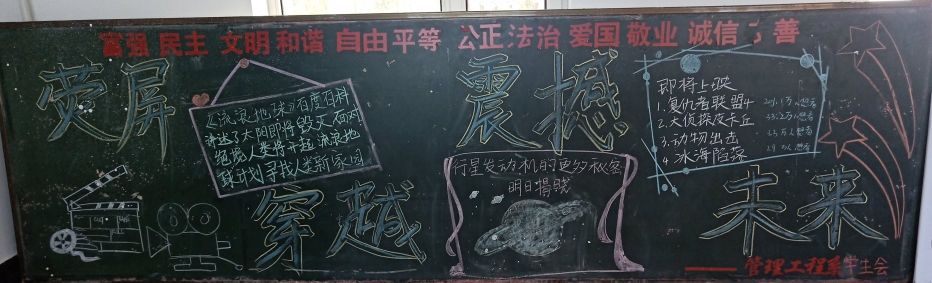 富强 民主 文明 和谐 自由 平等 公正 法治 爱国 敬业 诚信 善
荧屏
震撼
穿越
未来
《流浪地球》百度百科
讲述了太阳即将毁灭 面对
绝境人类将开起 流浪地
球计划寻找人类新家园
行星发动机的更多秘密
明日揭晓
即将上映
1.复仇者联盟4
2.大侦探皮卡丘
3.动物出击
4 冰海陷落
—— 管理工程系学生会